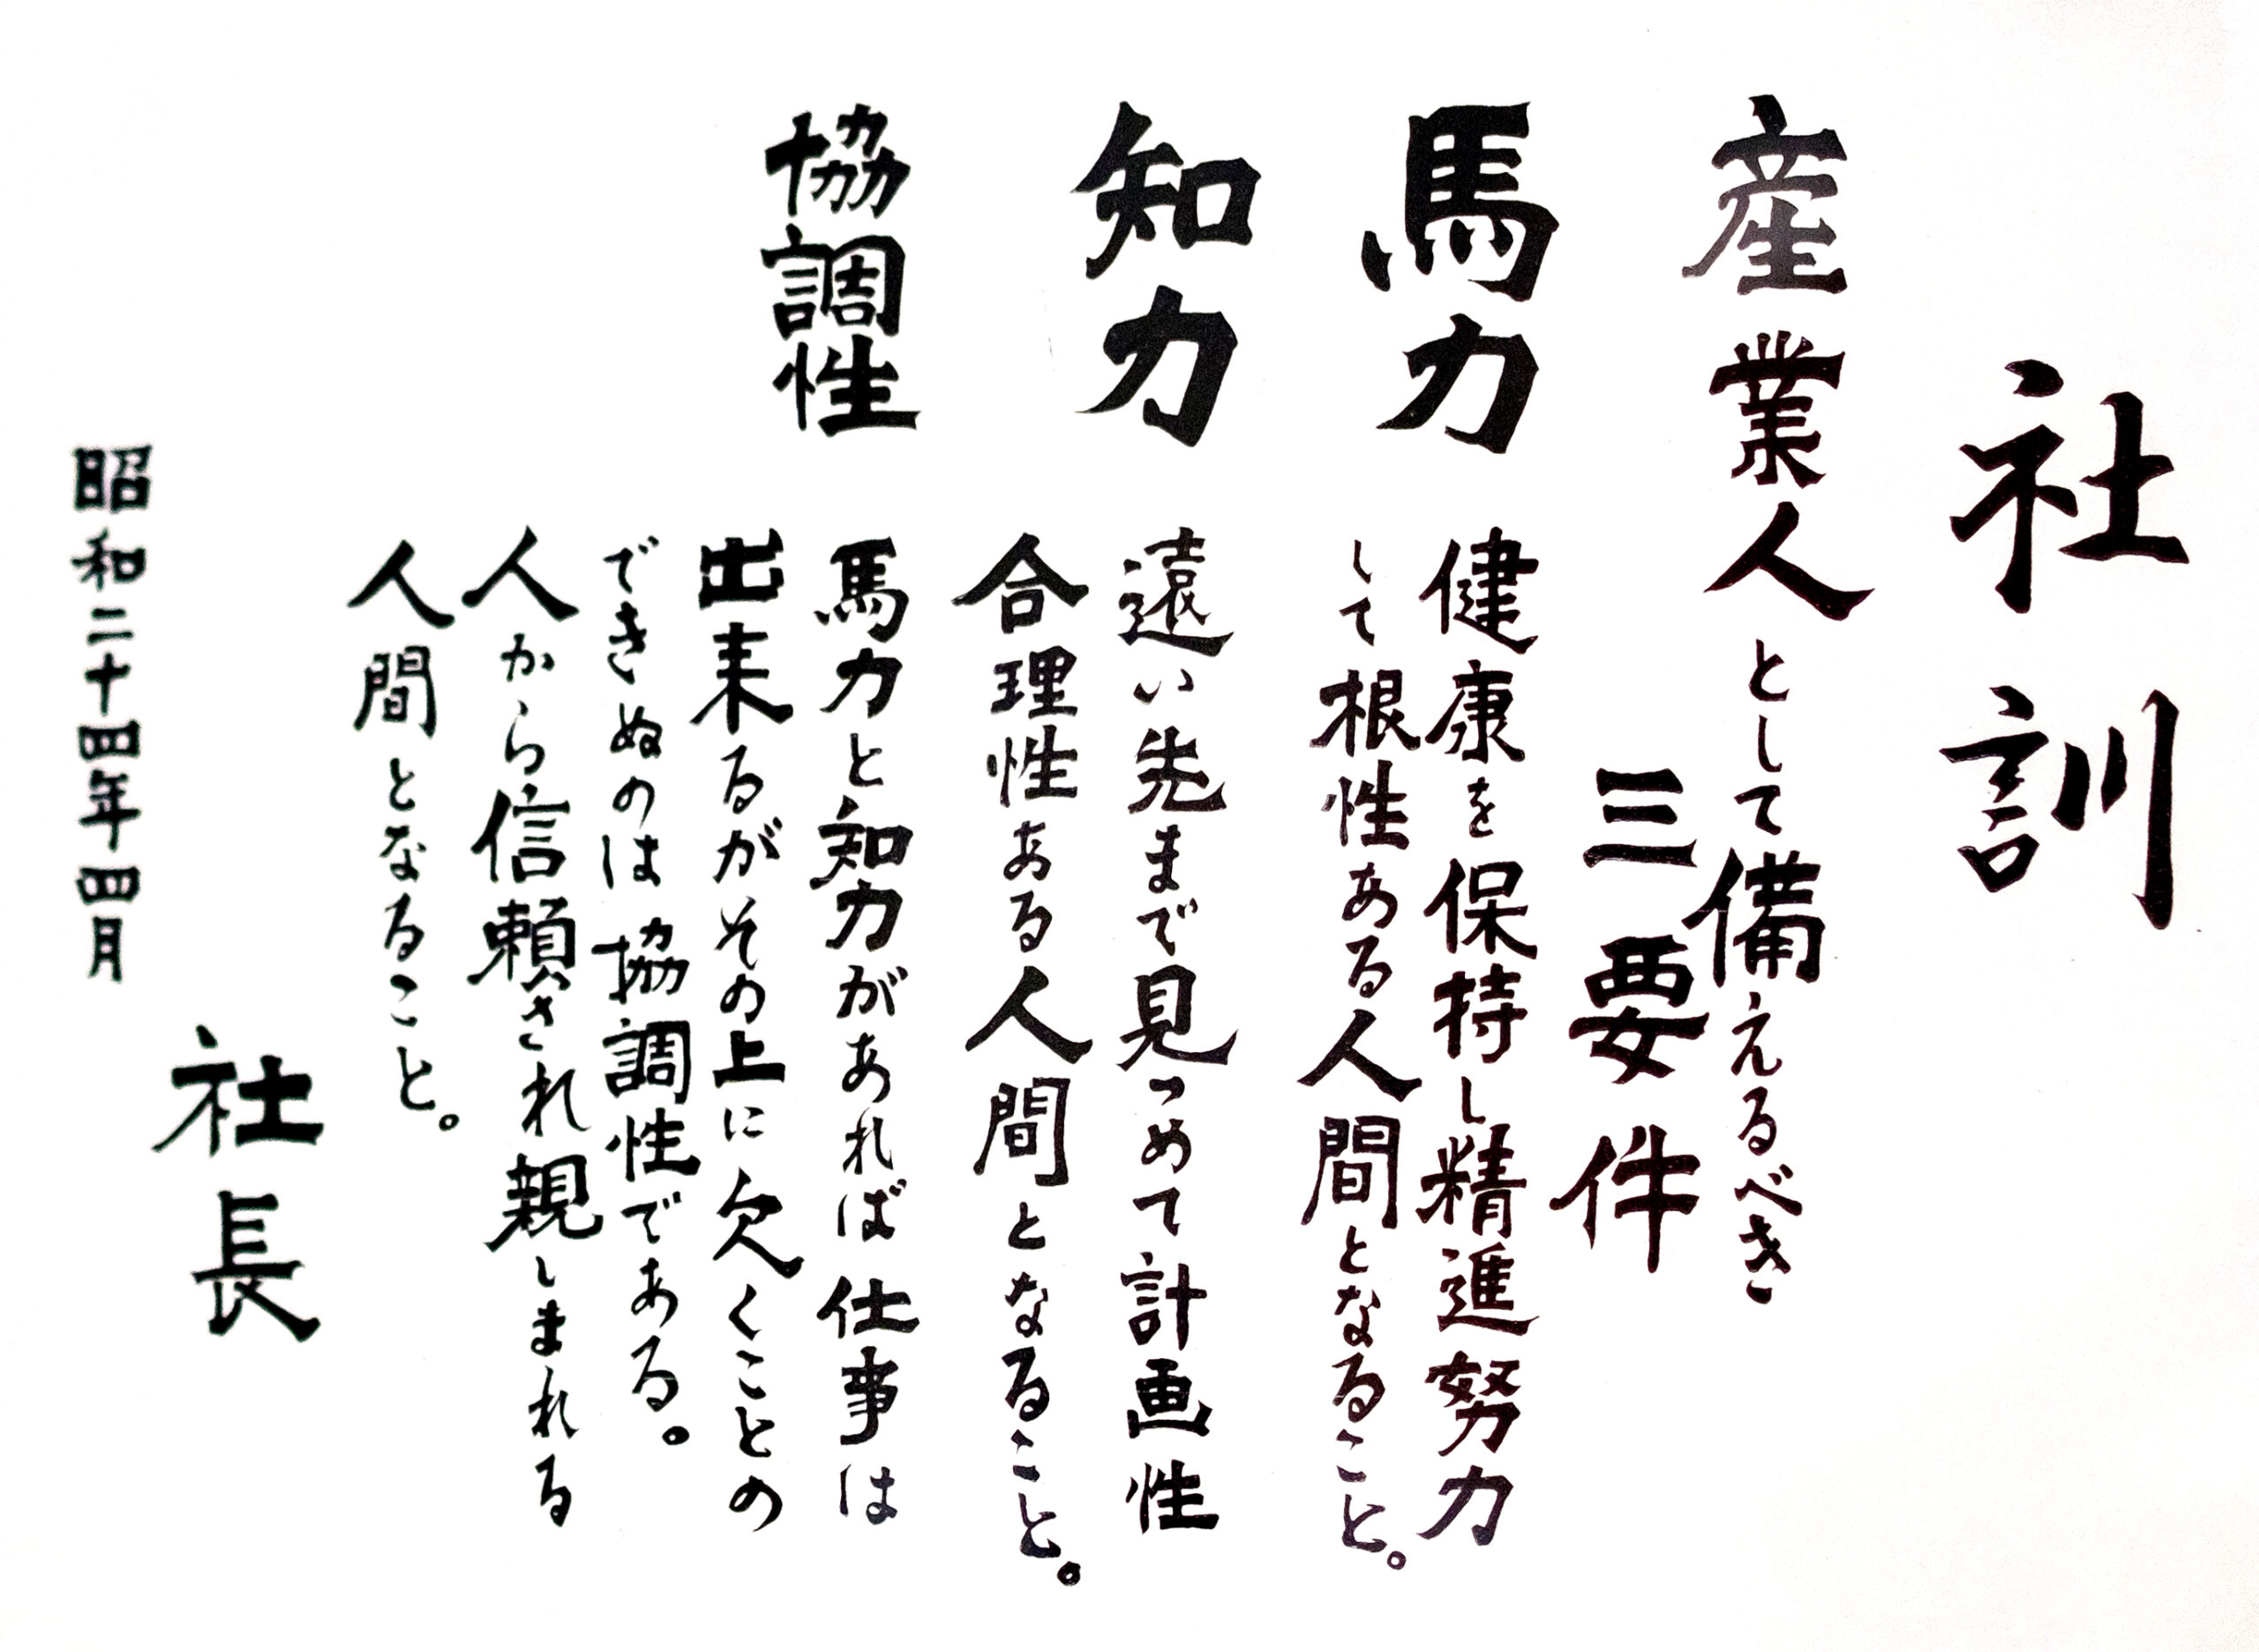 社訓
産業人として備えるべき
三要件
馬力
健康を保持し精進努力
して根性ある人間となること。
知力
遠い先まで見つめて計画性
合理性ある人間となること。
協調性
馬力と知力があれば仕事は
出来るがその上に欠くことの
できぬのは協調性である。
人から信頼され親しまれる
人間となること。
社長
昭和二十四年四月